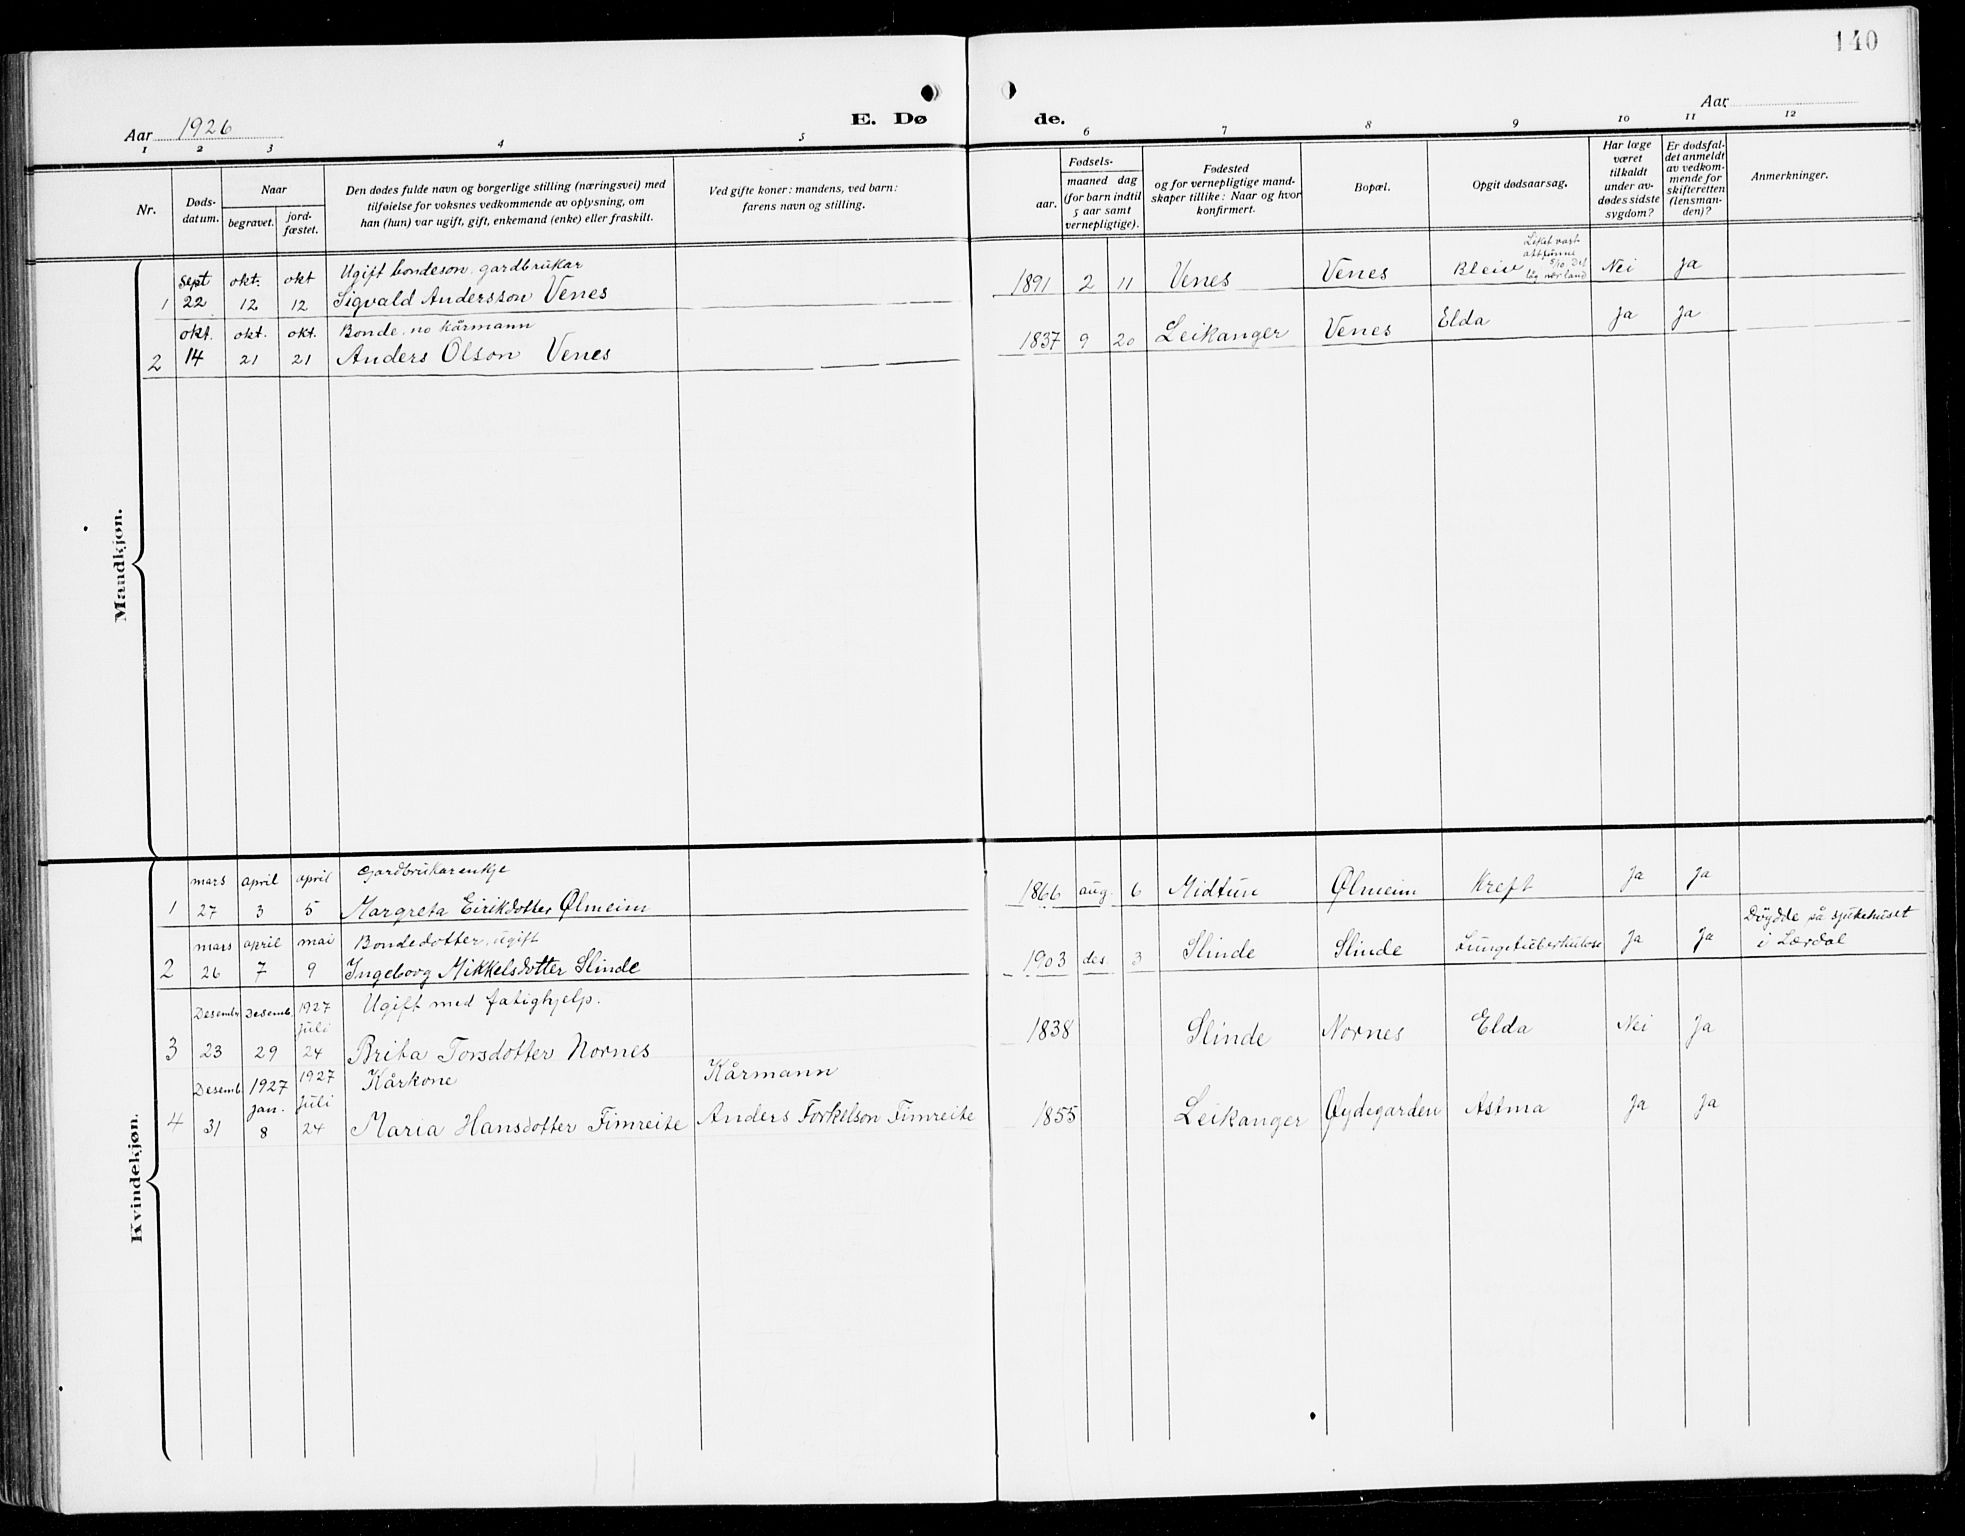 140
Aar 1926
E. Dø de.
Aar
1 2 3 4 5 6 7 8 9 10 11 12
Nr.
Døds-
datum.
Naar
begravet.
jord-
fæstet.
Den dødes fulde navn og borgerlige stilling (næringsvei) med
tilføielse for voksnes vedkommende av oplysning, om
han (hun) var ugift, gift, enkemand (enke) eller fraskilt.
Ved gifte koner: mandens, ved barn:
farens navn og stilling.
Fødsels-
aar.
maaned dag
(for barn indtil
5 aar samt
vernepligtige).
Fødested
og for vernepligtige mand-
skaper tillike: Naar og hvor
konfirmert.
Bopæl.
Opgit dødsaarsag.
Har læge
været
tilkaldt
under av-
dødes sidste
sygdom?
Er dødsfal-
det anmeldt
av vedkom-
mende for
skifteretten
(lensman-
den)?
Anmerkninger.
Mandkjøn.
Sept okt. okt Ugift bondeson, gardbrukar
1 22 12 12 Sigvald Andersson Venes 1891 2 11 Venes Venes Bleiv Nei Ja
Liket vart
attfunne
5/10. Det
låg nær land
okt. okt. okt. Bonde, no kårmann
2 14 21 21 Anders Olson Venes 1837 9 20 Leikanger Venes Elda Ja Ja
Kvindekjøn.
mars april april Gardbrukarenkje
1 27 3 5 Margreta Eirikdotter Ølmeim 1866 aug. 6 Midtun Ølmeim Kreft Ja Ja
mars april mai Bondedotter, ugift
2 26 7 9 Ingeborg Mikkelsdotter Slinde 1903 des. 3 Slinde Slinde Lungetuberkulose Ja Ja Døydde på sjukehuset
i Lærdal
Desembr Desemb. 1927 Ugift med fatighjelp.
juli
3 23 29 24 Brita Torsdotter Nornes 1838 Slinde Nornes Elda Nei Ja
Desemb. 1927 1927 Kårkone Kårmann
jan. juli
4 31 8 24 Maria Hansdotter Fimreite Anders Torkelson Fimreite 1855 Leikanger Øydegarden Astma Ja Ja